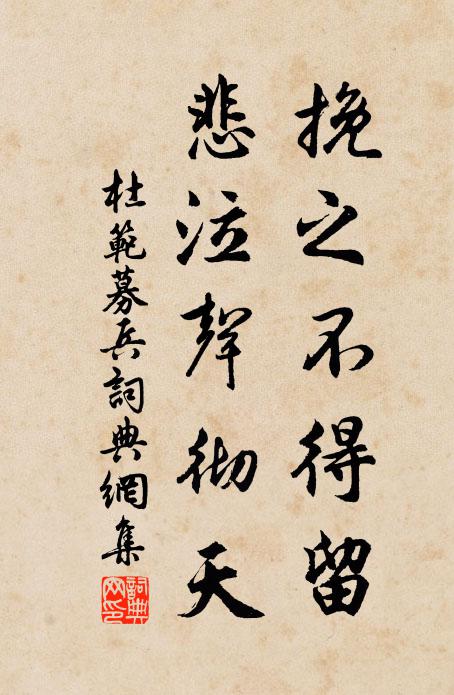 挽之不得留
悲泣聲徹天
杜範募兵詞典網集
詞典網印